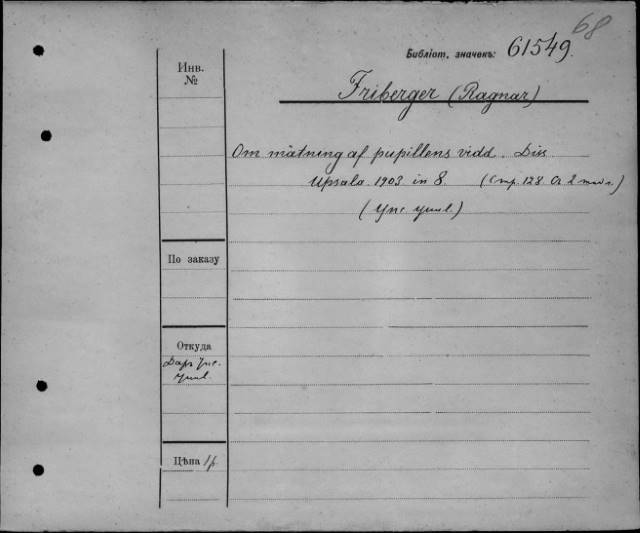 68
Библіот. значекъ: 61549.
Инв.
№
Friberger (Ragnar)
Om mätning af pupillens vidd. Diss
Upsala. 1903 in 8. (Стр. 128 2
(Упс. унив.)
По заказу
Откуда
Даръ Упс.
унив.
Цѣна 1р.